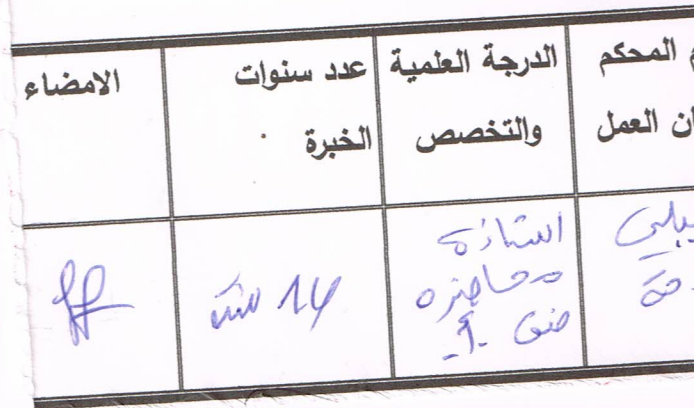 م المحكم
ان العمل
الدرجة العلمية
والتخصص
عدد سنوات
الخبرة
الامضاء
استاذة
محاضرة
14 سنة